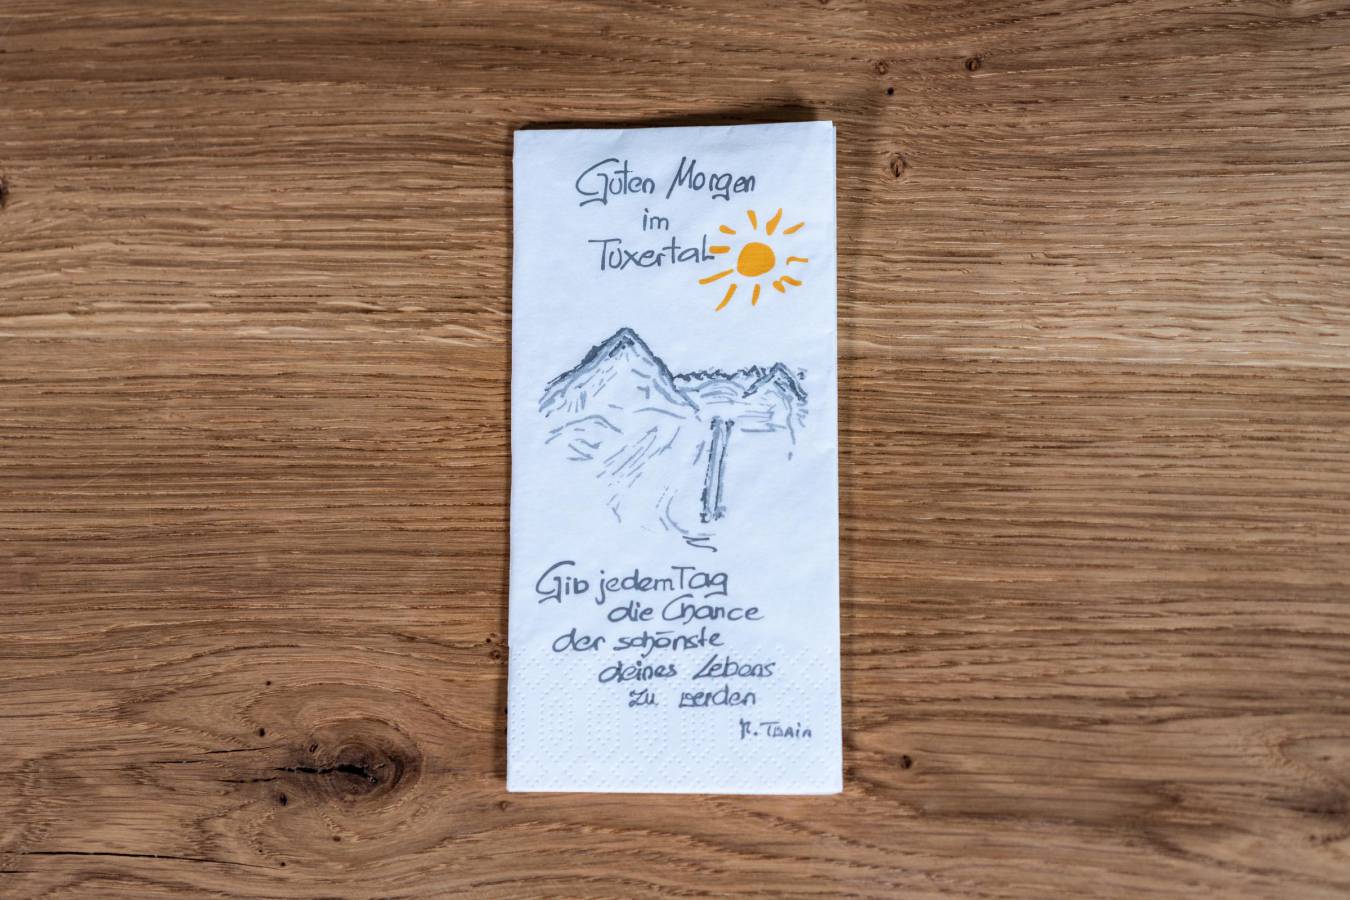 Guten Morgen
im
Tuxertal
Gib jedem Tag
die Chance
der schönste
deines Lebens
zu werden
M. Twain